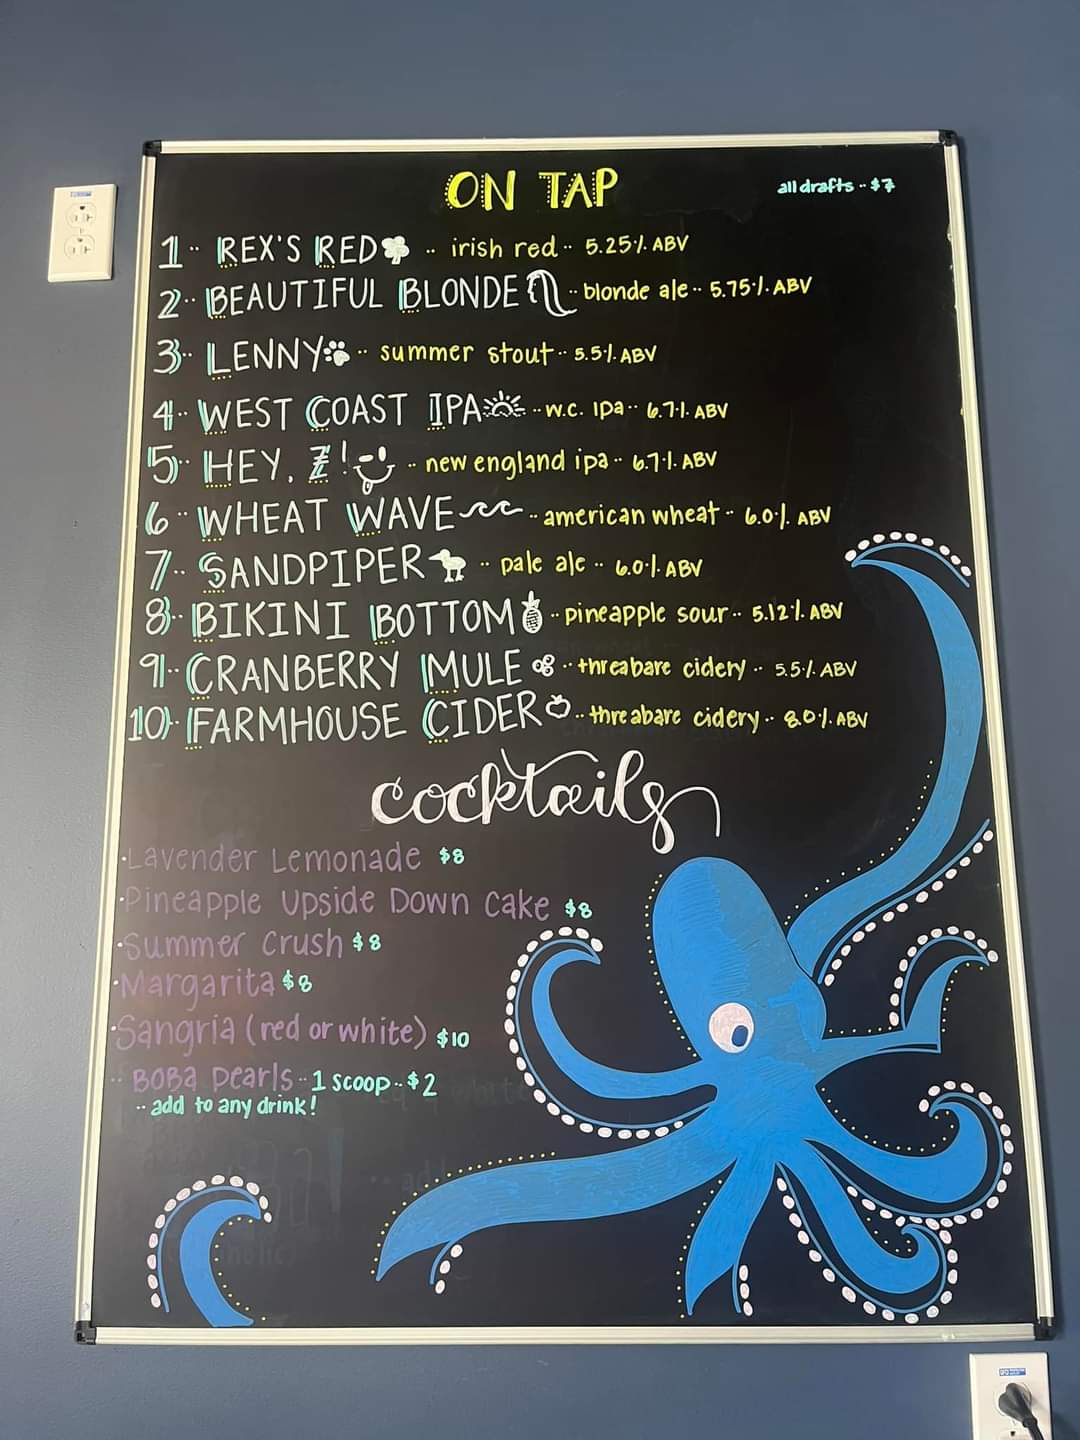 ON TAP
all drafts -- $7
1·· REX'S RED ·· irish red ·· 5.25% ABV
2·· BEAUTIFUL BLONDE ·· blonde ale ·· 5.75% ABV
3·· LENNY ·· summer stout ·· 5.5% ABV
4·· WEST COAST IPA ·· W.C. IPA ·· 6.7% ABV
5·· HEY, Z! ·· new england ipa ·· 6.7% ABV
6·· WHEAT WAVE ·· american wheat ·· 6.0% ABV
7·· SANDPIPER ·· pale ale ·· 6.0% ABV
8·· BIKINI BOTTOM ·· pineapple sour ·· 5.12% ABV
9·· CRANBERRY MULE ·· threabare cidery ·· 5.5% ABV
10·· FARMHOUSE CIDER ·· threabare cidery ·· 8.0% ABV
cocktails
·Lavender Lemonade $8
·Pineapple Upside Down Cake $8
·Summer Crush $8
·Margarita $8
·Sangria (red or white) $10
·· Boba Pearls ·· 1 scoop ·· $2
·· add to any drink!